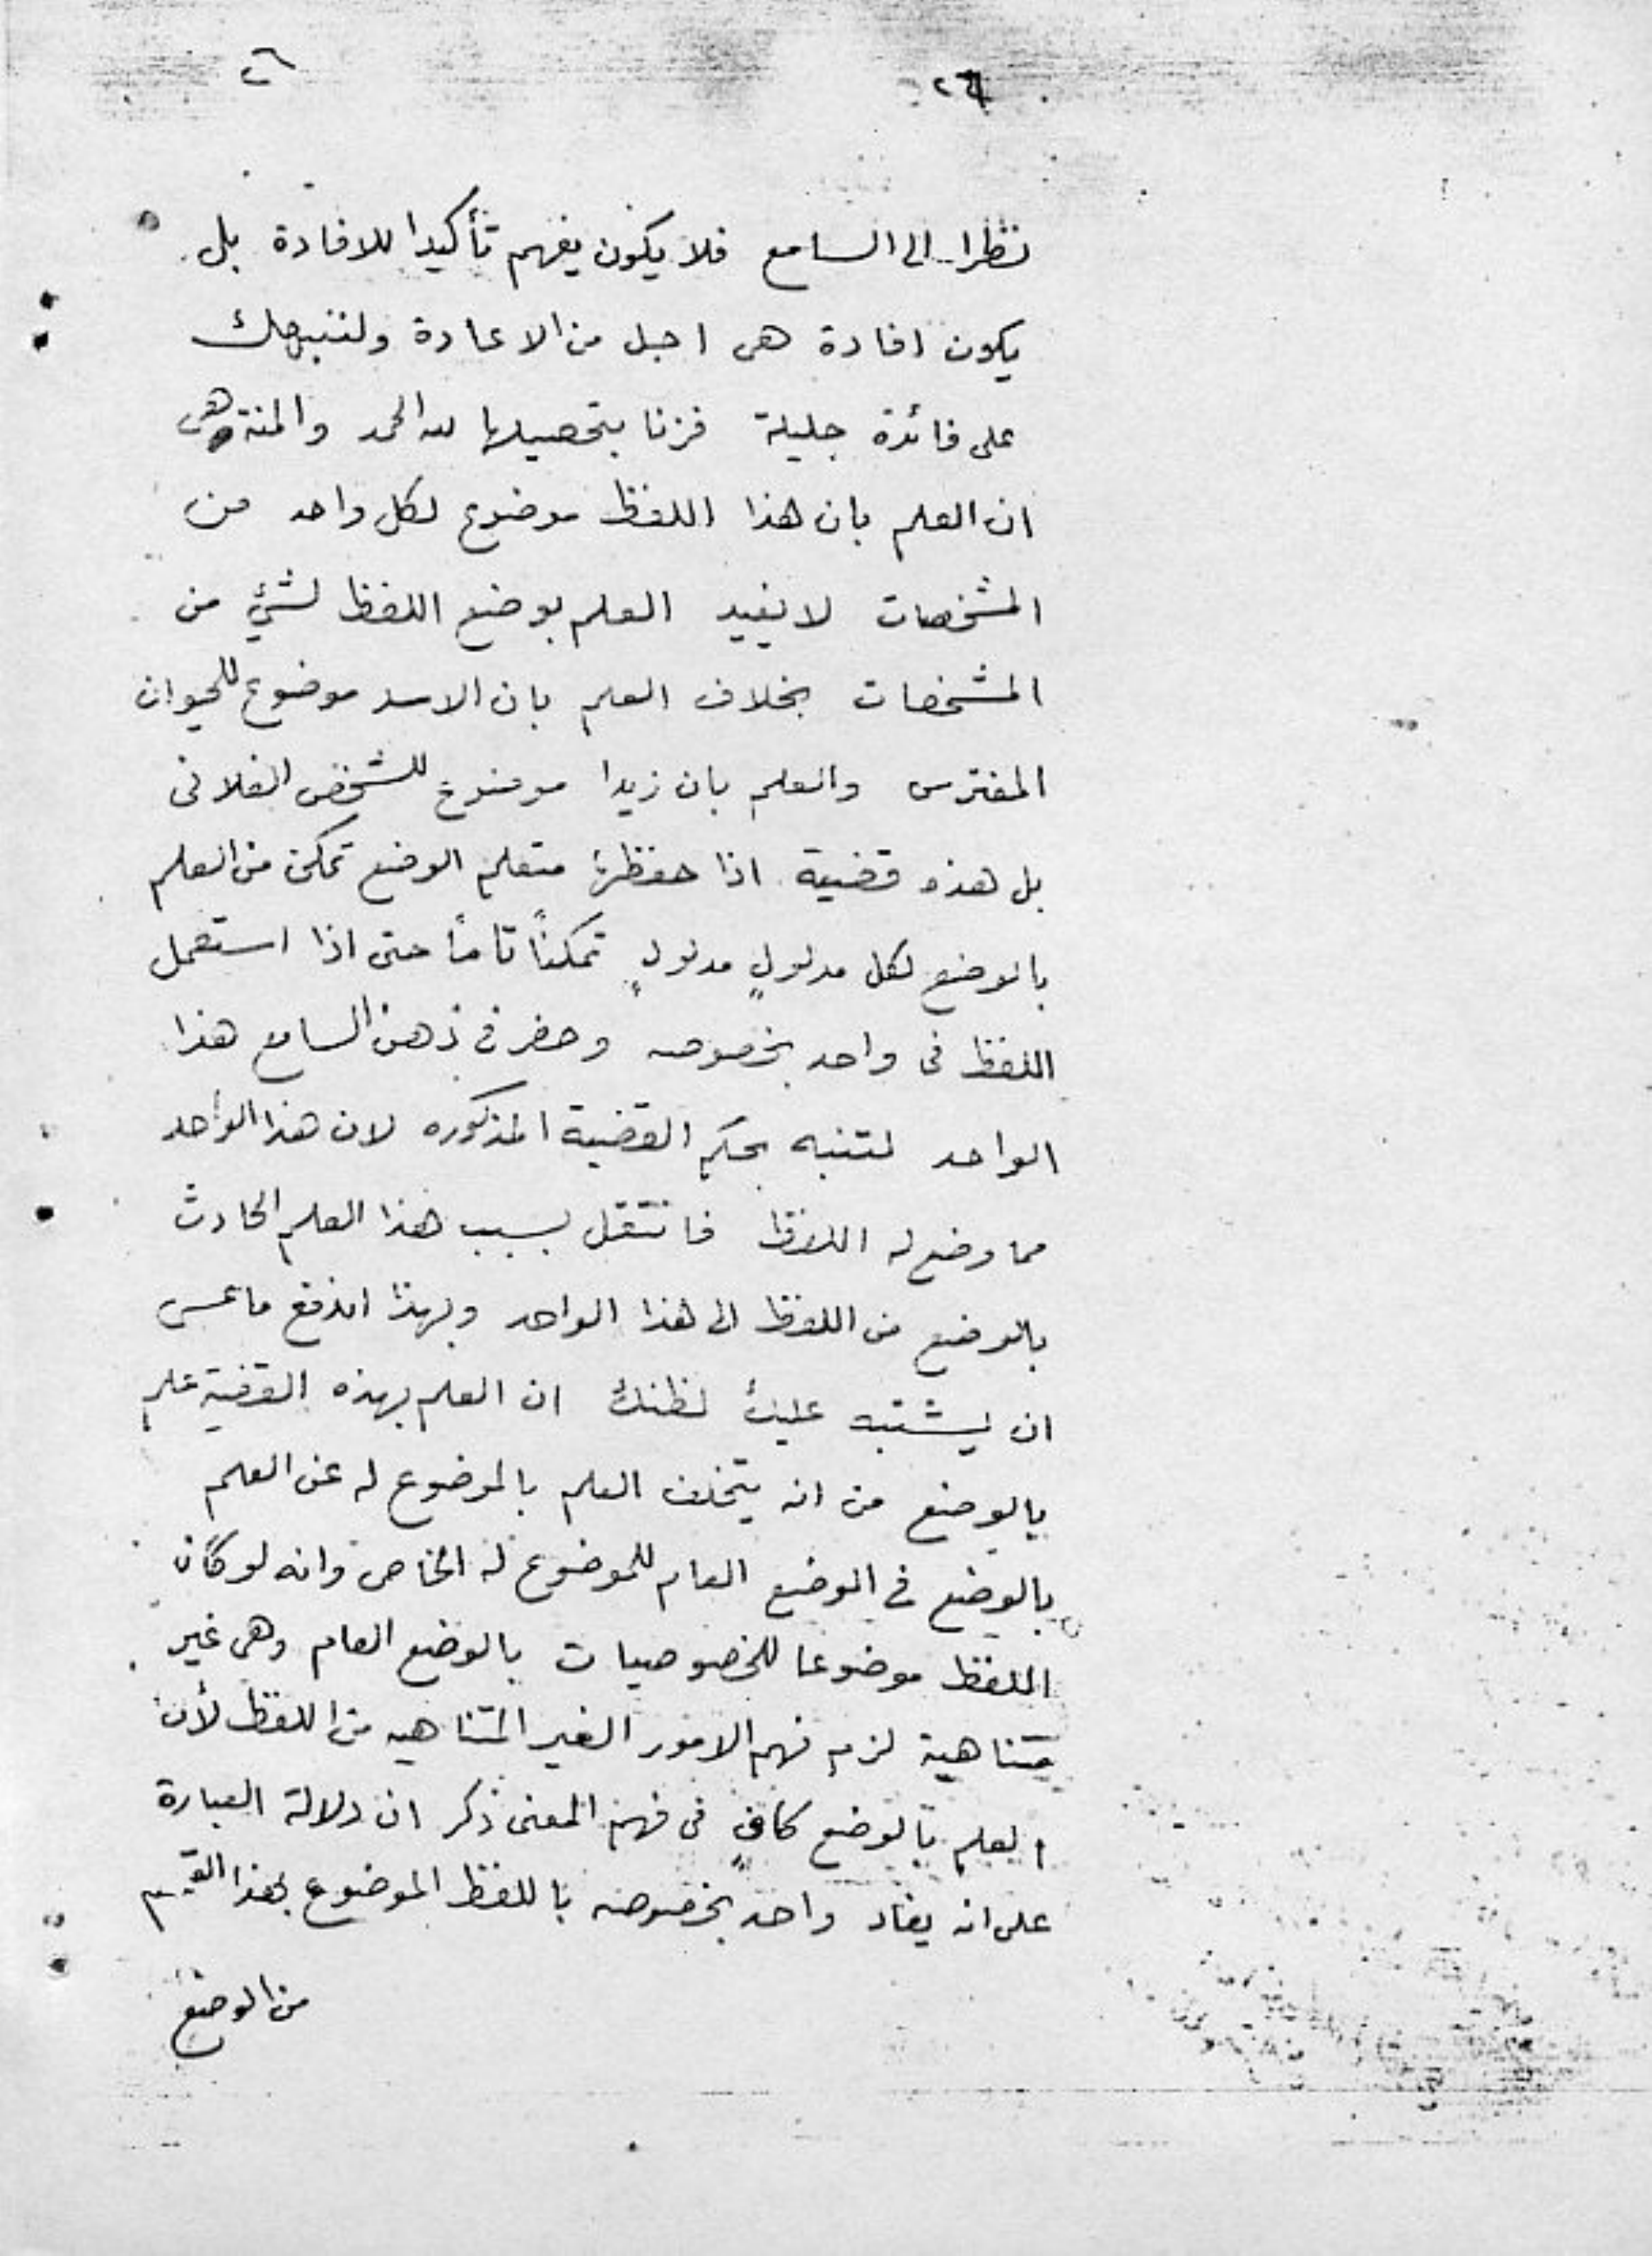 ٢٦ ٢٦
نظرا الى السامع فلا يكون يفهم تأكيدا للافادة بل
يكون افادة هى اجل من الاعادة ولننبهك
على فائدة جليلة فزنا بتحصيلها لله الحمد والمنة وهى
ان العلم بان هذا اللفظ موضوع لكل واحد من
المشخصات لا يفيد العلم بوضع اللفظ لشئ من
المشخصات بخلاف العلم بان الاسد موضوع للحيوان
المفترس والعلم بان زيدا موضوع للشخص الفلانى
بل هذه قضية اذا حفظها متعلم الوضع تمكن من العلم
بالوضع لكل مدلولٍ مدلولٍ تمكناً تاماً حتى اذا استعمل
اللفظ فى واحد بخصوصه وحضر فى ذهن السامع هذا
الواحد لتنبه بحكم القضية المذكوره لان هذا الواحد
مما وضع له اللفظ فانتقل بسبب هذا العلم الحادث
بالوضع من اللفظ الى هذا الواحد وبهذا اندفع ما عسى
ان يشتبه عليك لظنك ان العلم بهذه القضية علم
بالوضع من انه يتخلف العلم بالموضوع له عن العلم
بالوضع فى الوضع العام للموضوع له الخاص وانه لو كان
اللفظ موضوعا للخصوصيات بالوضع العام وهى غير
متناهية لزم فهم الامور الغير المتناهيه من اللفظ لأن
العلم بالوضع كافٍ فى فهم المعنى ذكر ان دلالة العبارة
على انه يفاد واحد بخصوصه باللفظ الموضوع بهذا القسم
من الوضع